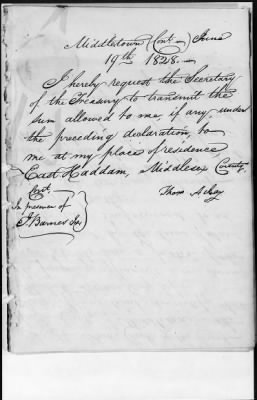 Middletown (Cont.) June
19th 1828.
I hereby request the Secretary
of the Treasury to transmit the
sum allowed to me, if any, under
the preceding declaration, to
me at my place of residence,
East Haddam, Middlesex County,
Cont.
Thom Ackley
In presence of
J Barnes Jr